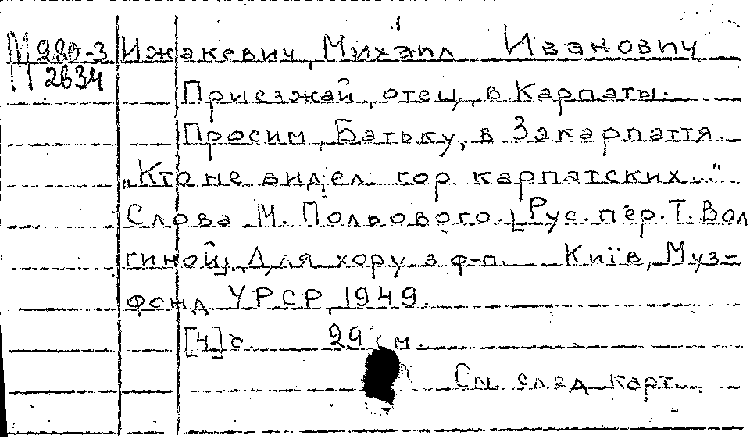 М 980-3 Ижакевич, Михаил Иванович
П 2634
Приезжай, отец, в Карпаты.
Просим, Батьку, в Закарпаття.
„Кто не видел гор карпатских..."
Слова М. Польового. [Рус. пер. Т. Вол
гиной]. Для хору з ф-п. Київ, Муз-
фонд УРСР, 1949.
[4] с. 29 см.
См. след. карт.